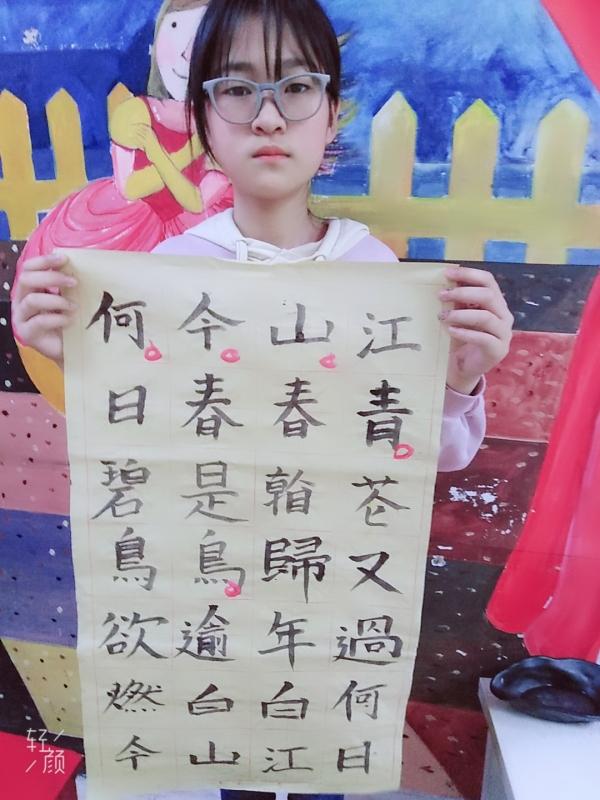 江青苍又過何日
山春歸年白江
今春是鳥逾白山
何日碧鳥欲燃今
轻颜